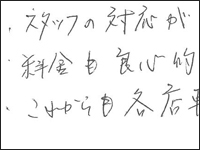 ・スタッフの対応が
料金も良心的
・これからも各店